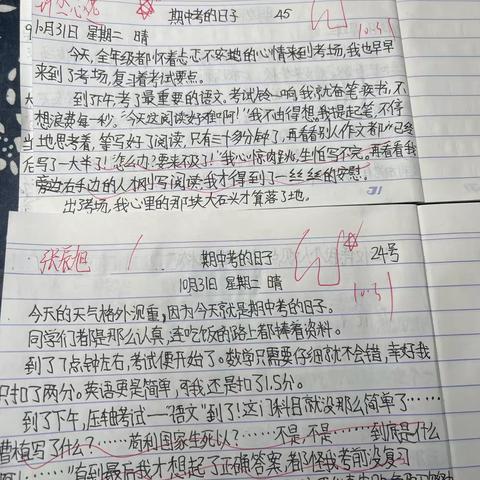 期中考的日子 45
10月31日 星期二 晴
今天,全年级都怀着忐忑不安地的心情来到考场,我也早早
来到了考场,复习着考试要点。
到下午考了最重要的语文。考试铃一响我就奋笔疾书,不
想浪费每一秒。“今天这阅读好难啊!”我不由得想。我提起笔,不停
地思考着,笔写好了阅读,只有三十多分钟了,再看看别人作文都已经
写了一大半了!怎么办?要来不及了!”我心惊肉跳,生怕写不完。再看看我
旁边右手边的人刚写阅读,我才得到了一丝丝的安慰。
出了考场,我心里的那块大石头才算落了地。
10.31
张宸旭 期中考的日子 24号
10月31日 星期二 晴
10.31
今天的天气格外沉重,因为今天就是期中考的日子。
同学们都是那么认真,连吃饭的路上都捧着资料。
到了7点钟左右,考试便开始了。数学只需要仔细就不会错,幸好我
只扣了两分。英语更是简单,可我还是扣了1.5分。
到了下午,压轴考试——“语文”到了!这门科目就没那么简单了……
曹植写了什么?……苟利国家生死以?……不是,不是……到底是什么
……”直到最后我才想起了正确答案,都怪我考前没复习